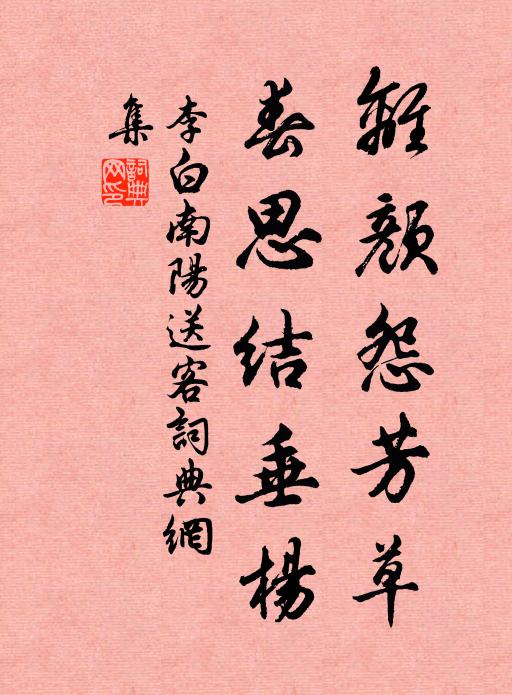 離顏怨芳草
春思結垂楊
李白南陽送客詞典網
集
詞典網印